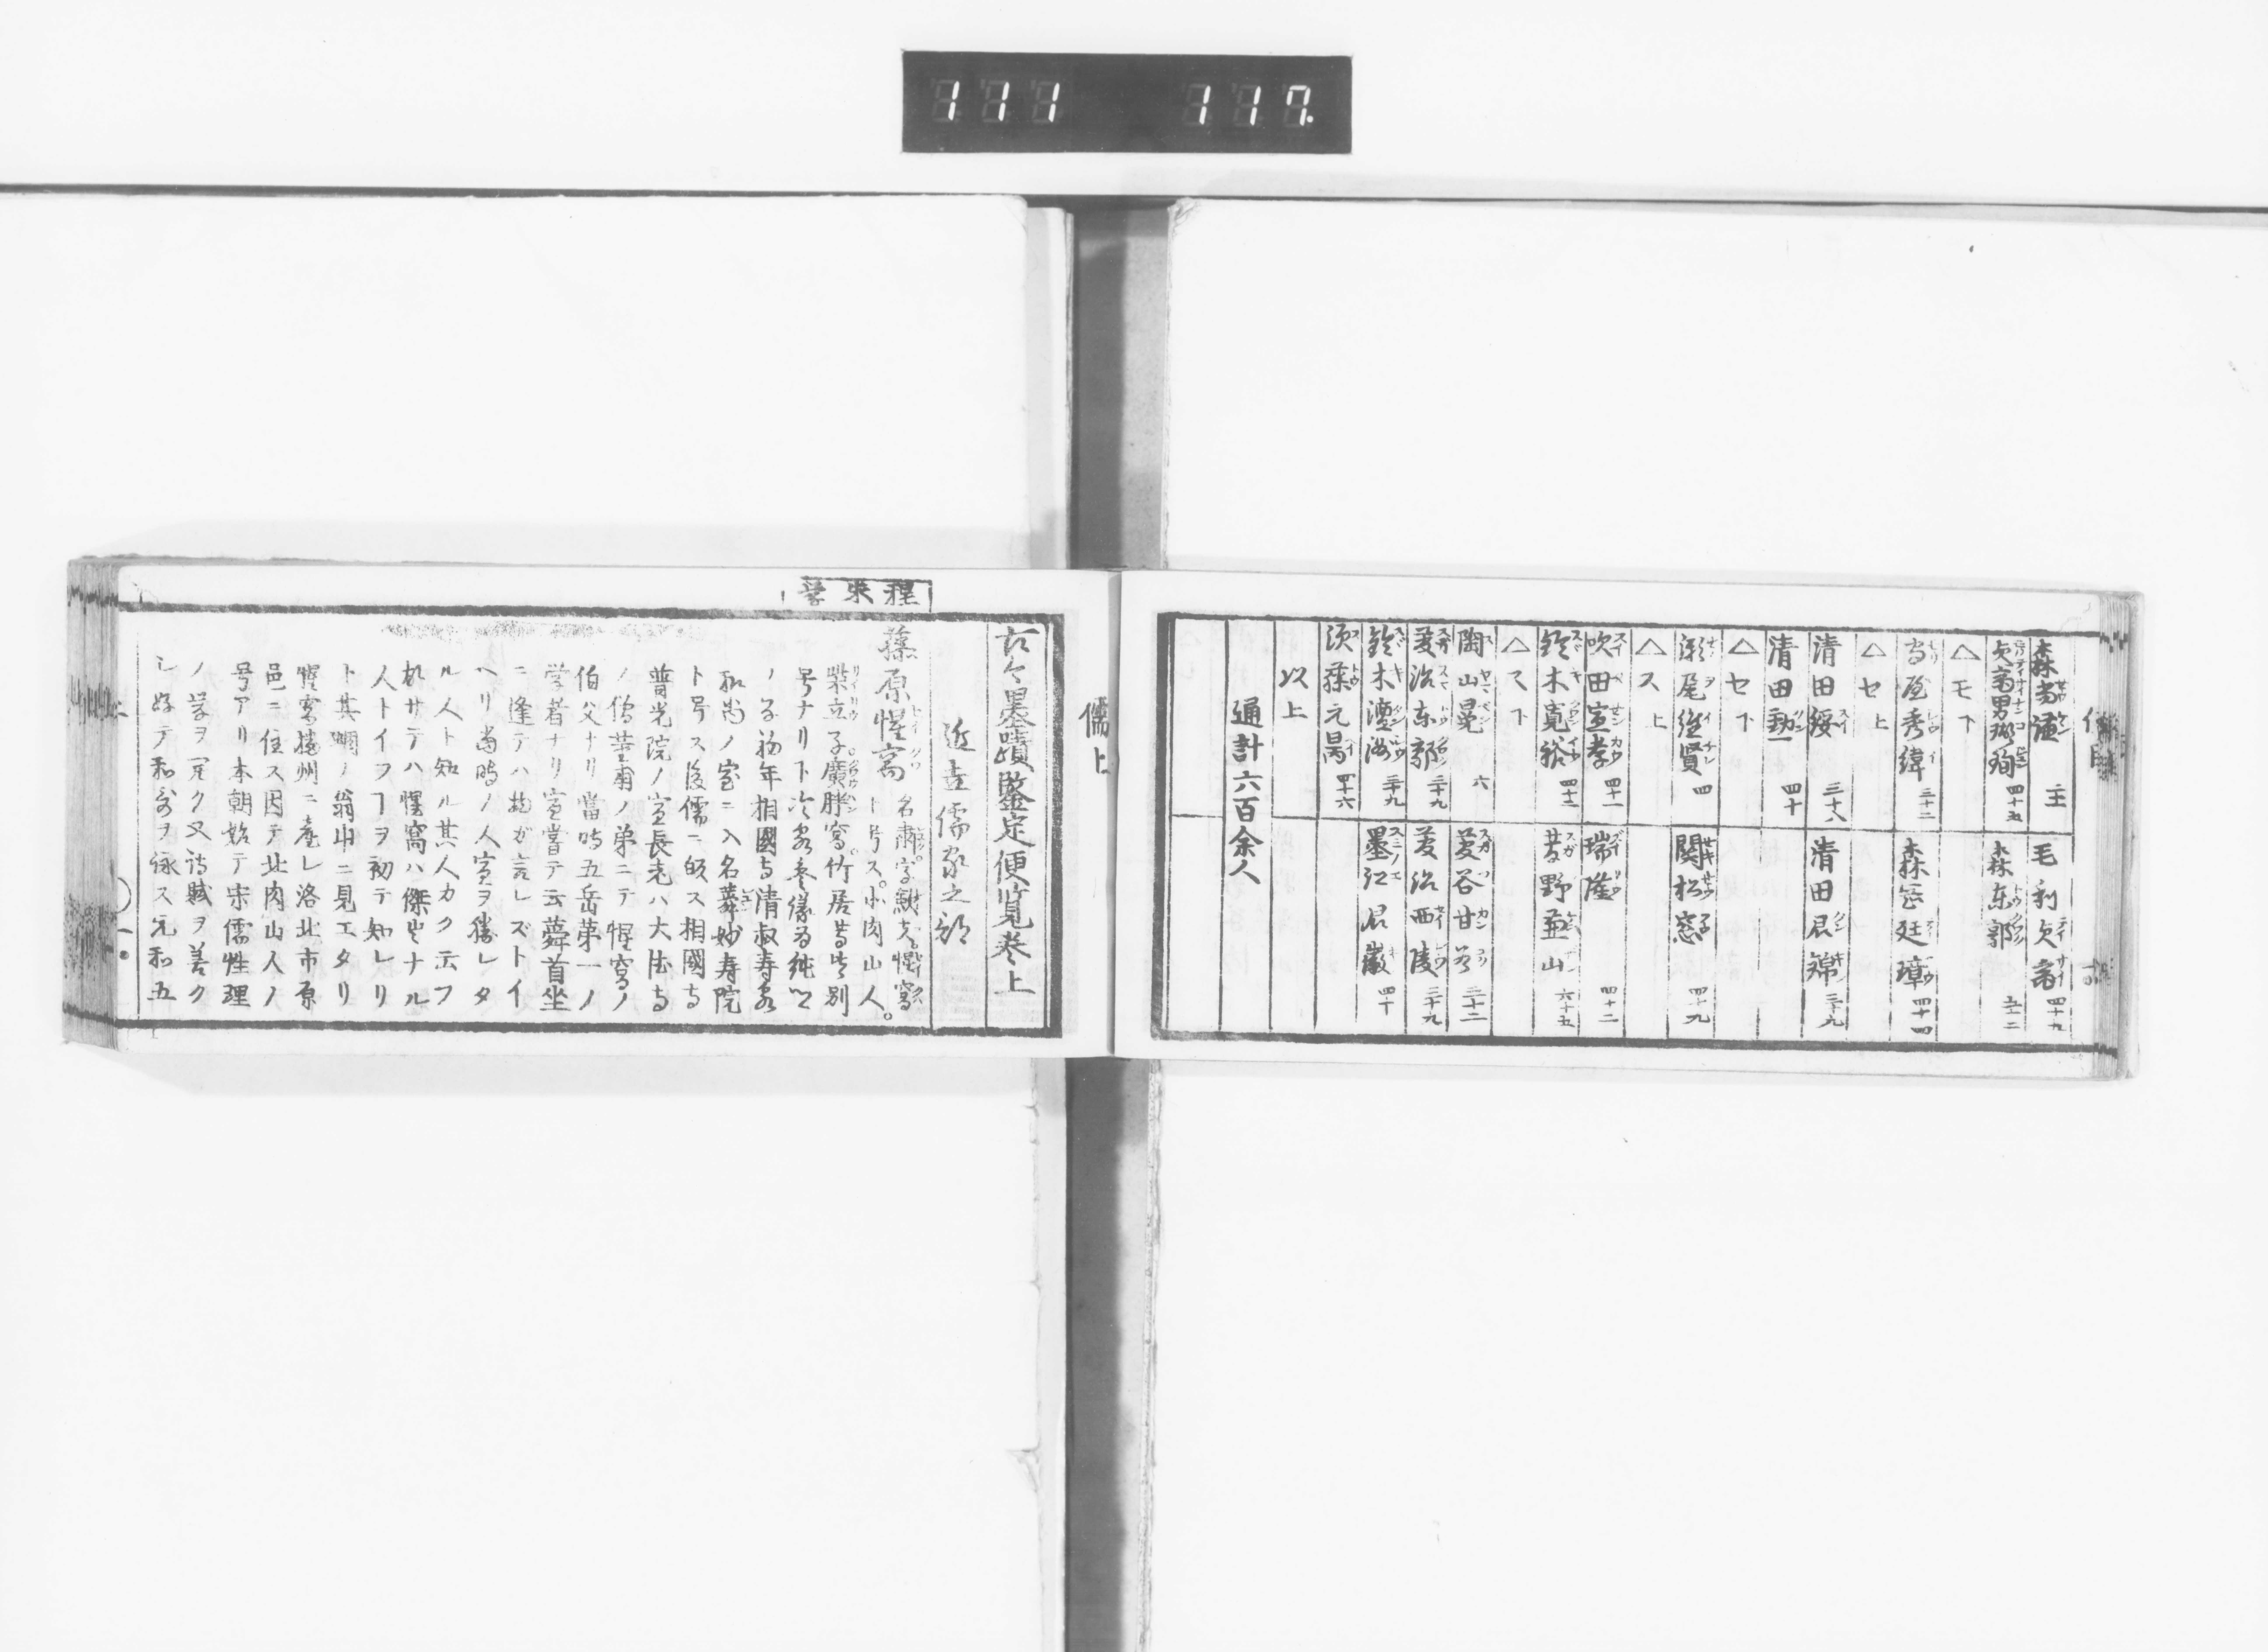 111 117
儒上
森 潢
毛利 斎 四十九
四十五
森東郭
△モ下
秀緯 三十二
森 廷璋 四十四
△セ上
清田綏 三十八
清田君錦 三十九
△セ下
清田勲 四十
瀬尾維賢 四
関松窓 四十九
△ス上
吹田宣孝 四十一
瑞隆 四十二
鈴木寛裕 四十三
菅野 山 六十五
△ス下
陶山晃 六
菱谷甘谷 三十二
東郭 三十九
西陵 三十九
鈴木澶洲 三十九
墨江 徽 四十
須藤元昺 四十六
以上
通計六百余人
程朱学
古今墨蹟鑒定便覧巻上
近世儒家之部
藤原惺窩 名粛字斂夫惺窩
ト号ス北肉山人。
柴立子廣胖窩。竹居 皆別
号ナリ下冷泉参議為純公
ノ子幼年相國寺清叔寿泉
和尚ノ室ニ入名蕣妙寿院
ト号ス後儒ニ皈ス相國寺
普光院ノ宣長老ハ大徳寺
ノ僧 甫ノ弟ニテ惺窩ノ
伯父ナリ當時五岳第一ノ
学者ナリ宣嘗テ云蕣首坐
ニ逢テハ物ガ言レズトイ
ヘリ當時ノ人宣ヲ勝レタ
ル人ト知ル其人カク云フ
机サテハ惺窩ハ傑出ナル
人トイフヿヲ初テ知レリ
ト其蜩ノ翁 ニ見エタリ
惺窩播州ニ産レ洛北市原
邑ニ住ス因テ北肉山人ノ
号アリ本朝始テ宋儒性理
ノ学ヲ究ク又詩賦ヲ善ク
シ好テ和哥ヲ詠ス元和五
上
一